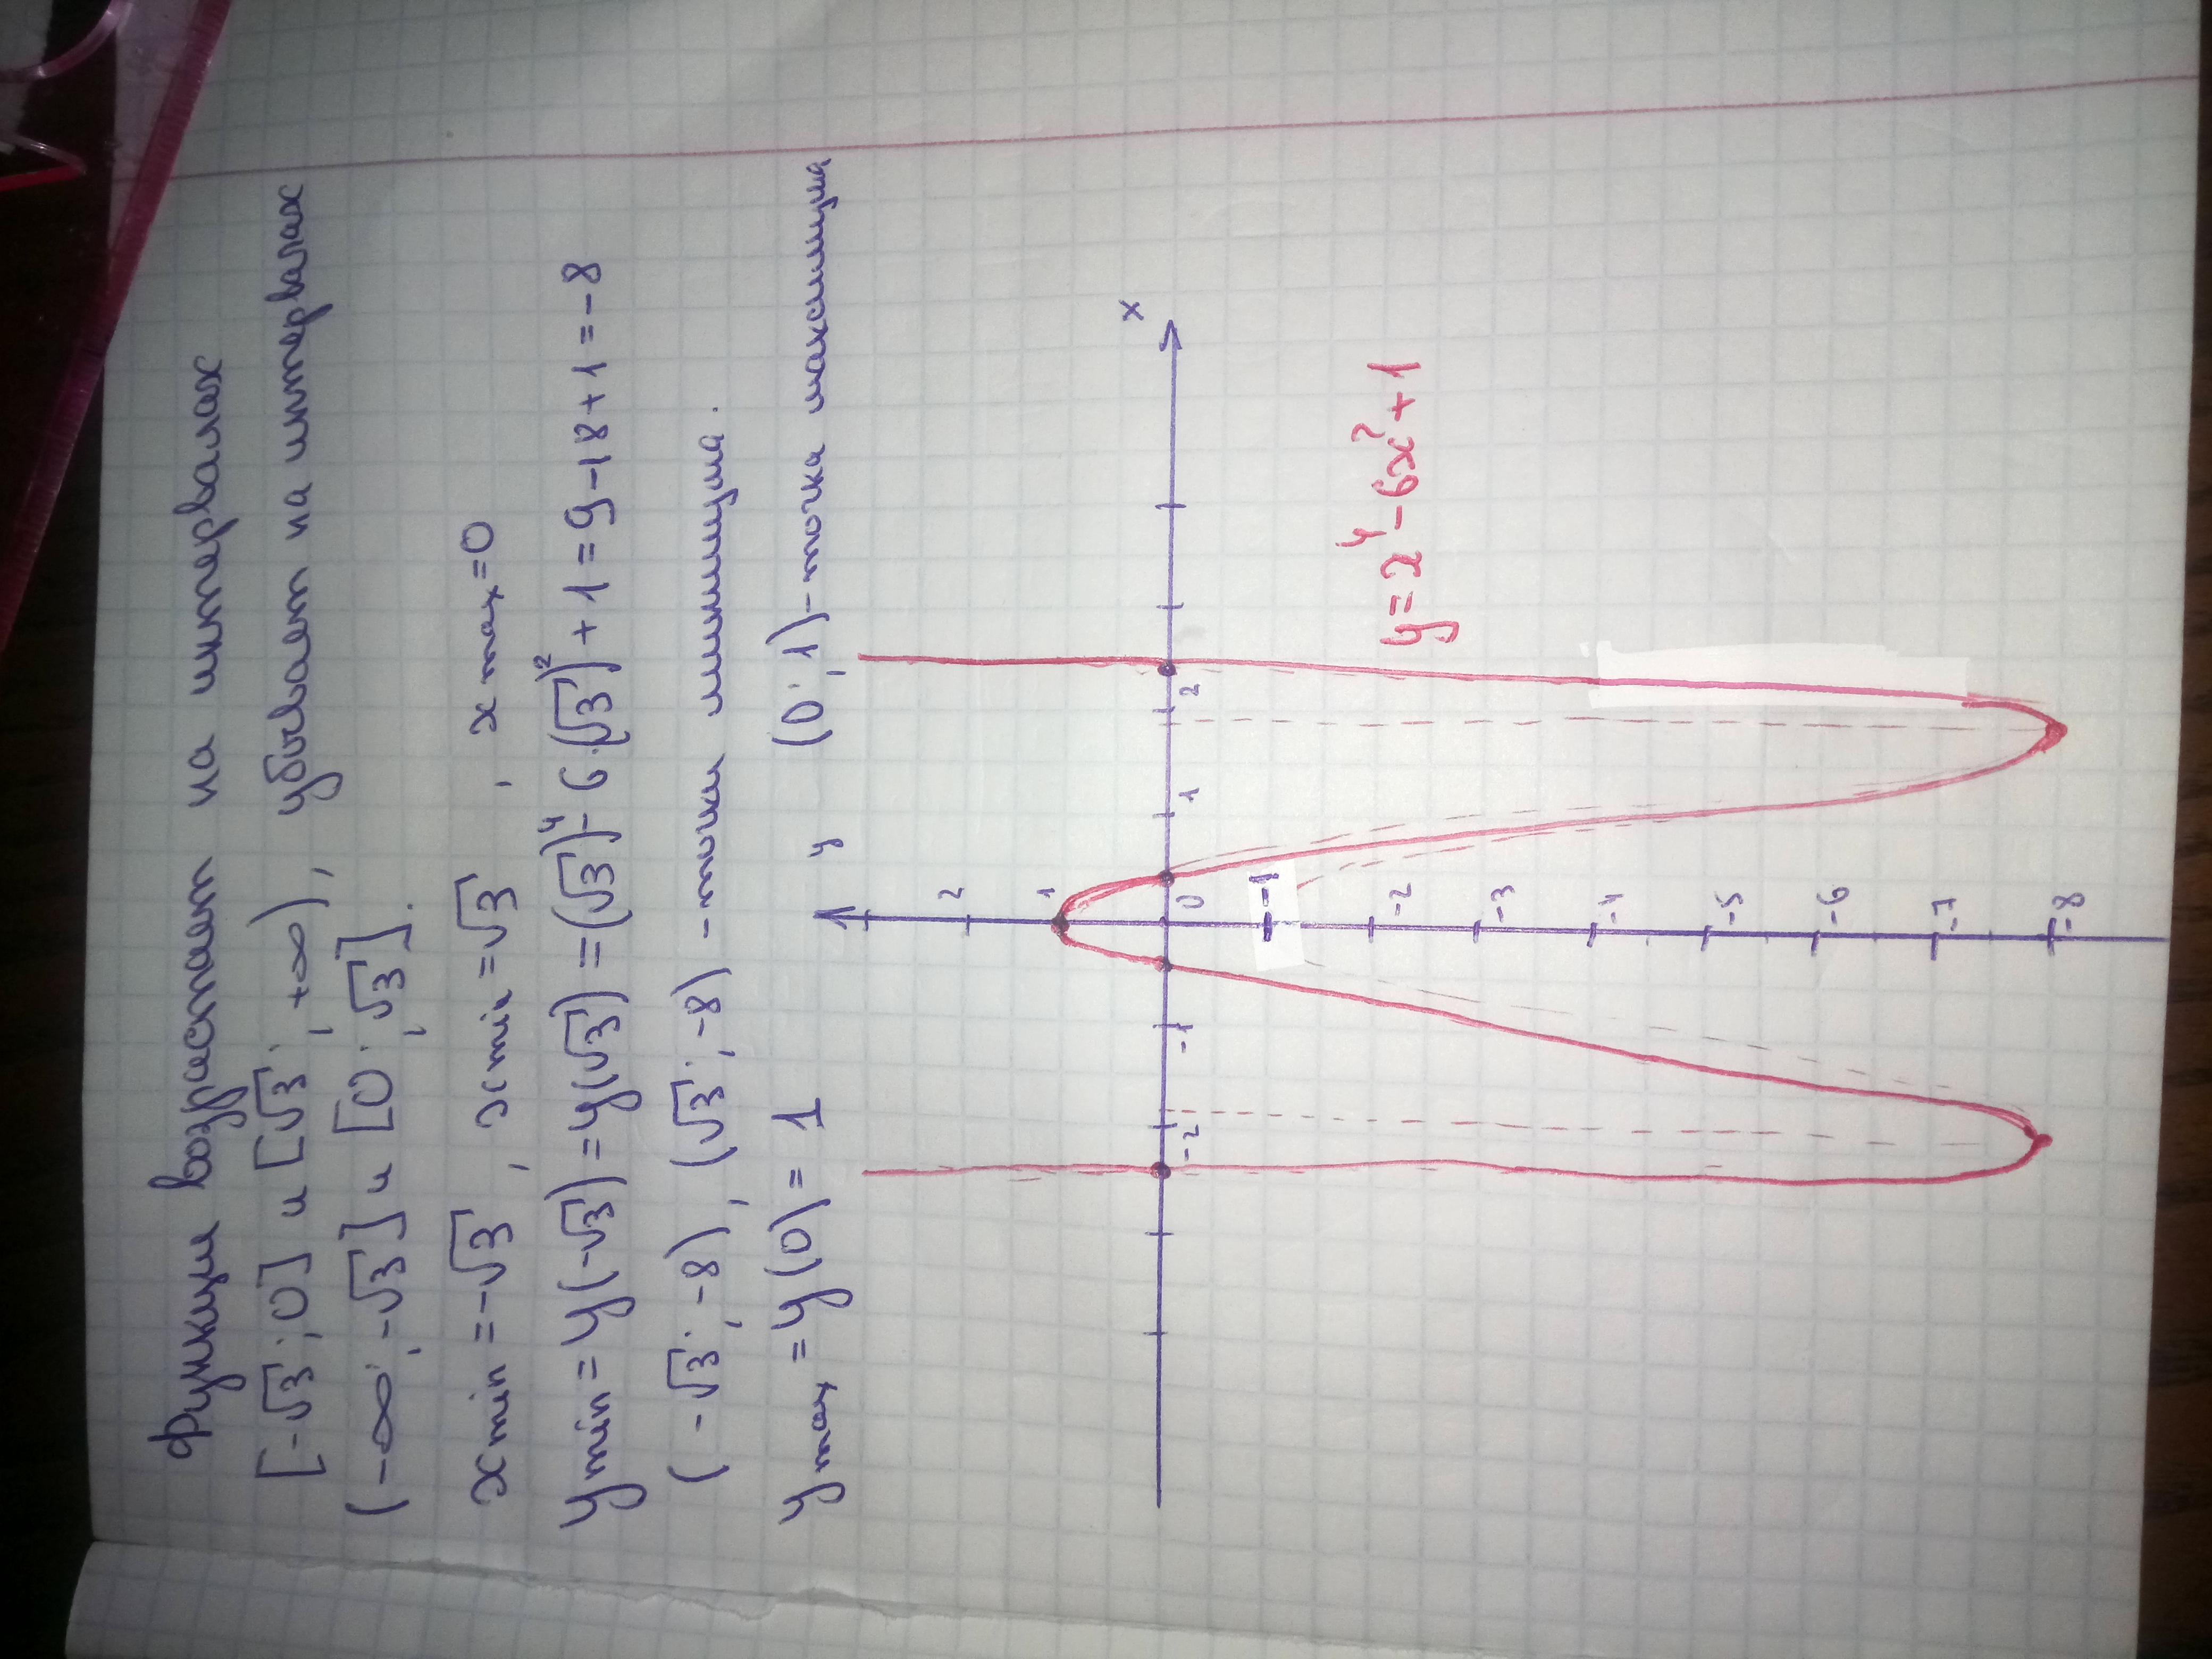 Функция возрастает на интервалах
[-√3; 0] и [√3; +∞), убывает на интервалах
(-∞; -√3] и [0; √3].
xmin = -√3, xmin = √3, xmax = 0
ymin = y(-√3) = y(√3) = (√3)⁴ - 6·(√3)² + 1 = 9 - 18 + 1 = -8
(-√3; -8), (√3; -8) - точки минимума.
ymax = y(0) = 1 (0; 1) - точка максимума
y
x
2
1
0
-2 -1 1 2
-1
-2
-3
-4
-5
-6
-7
-8
y = x⁴ - 6x² + 1